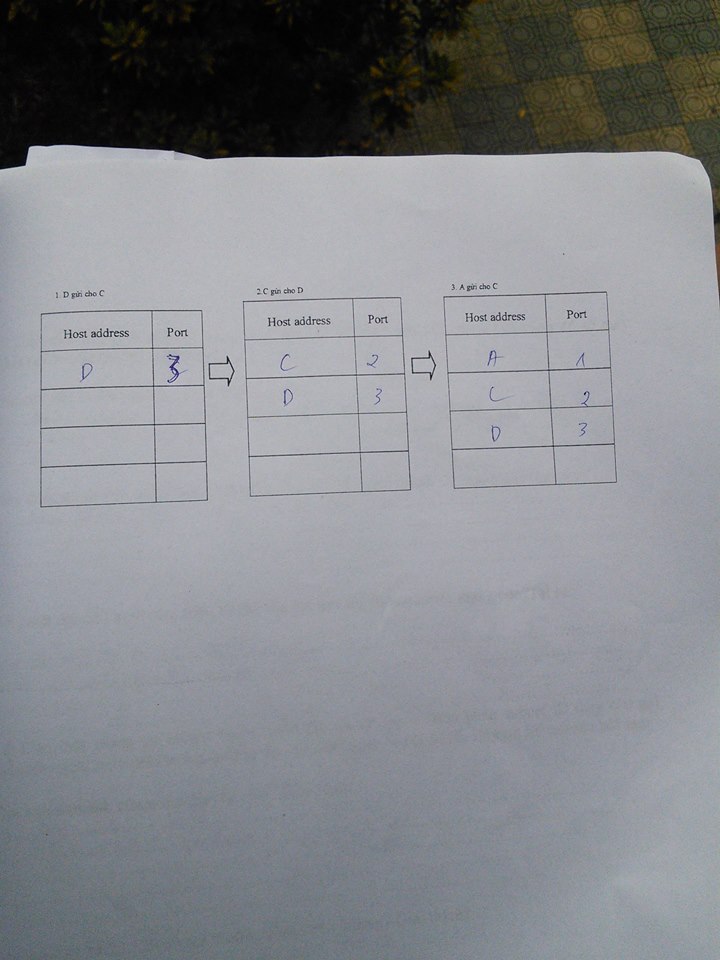 1. D gửi cho C
Host address Port
D 3
2.C gửi cho D
Host address Port
C 2
D 3
3. A gửi cho C
Host address Port
A 1
C 2
D 3